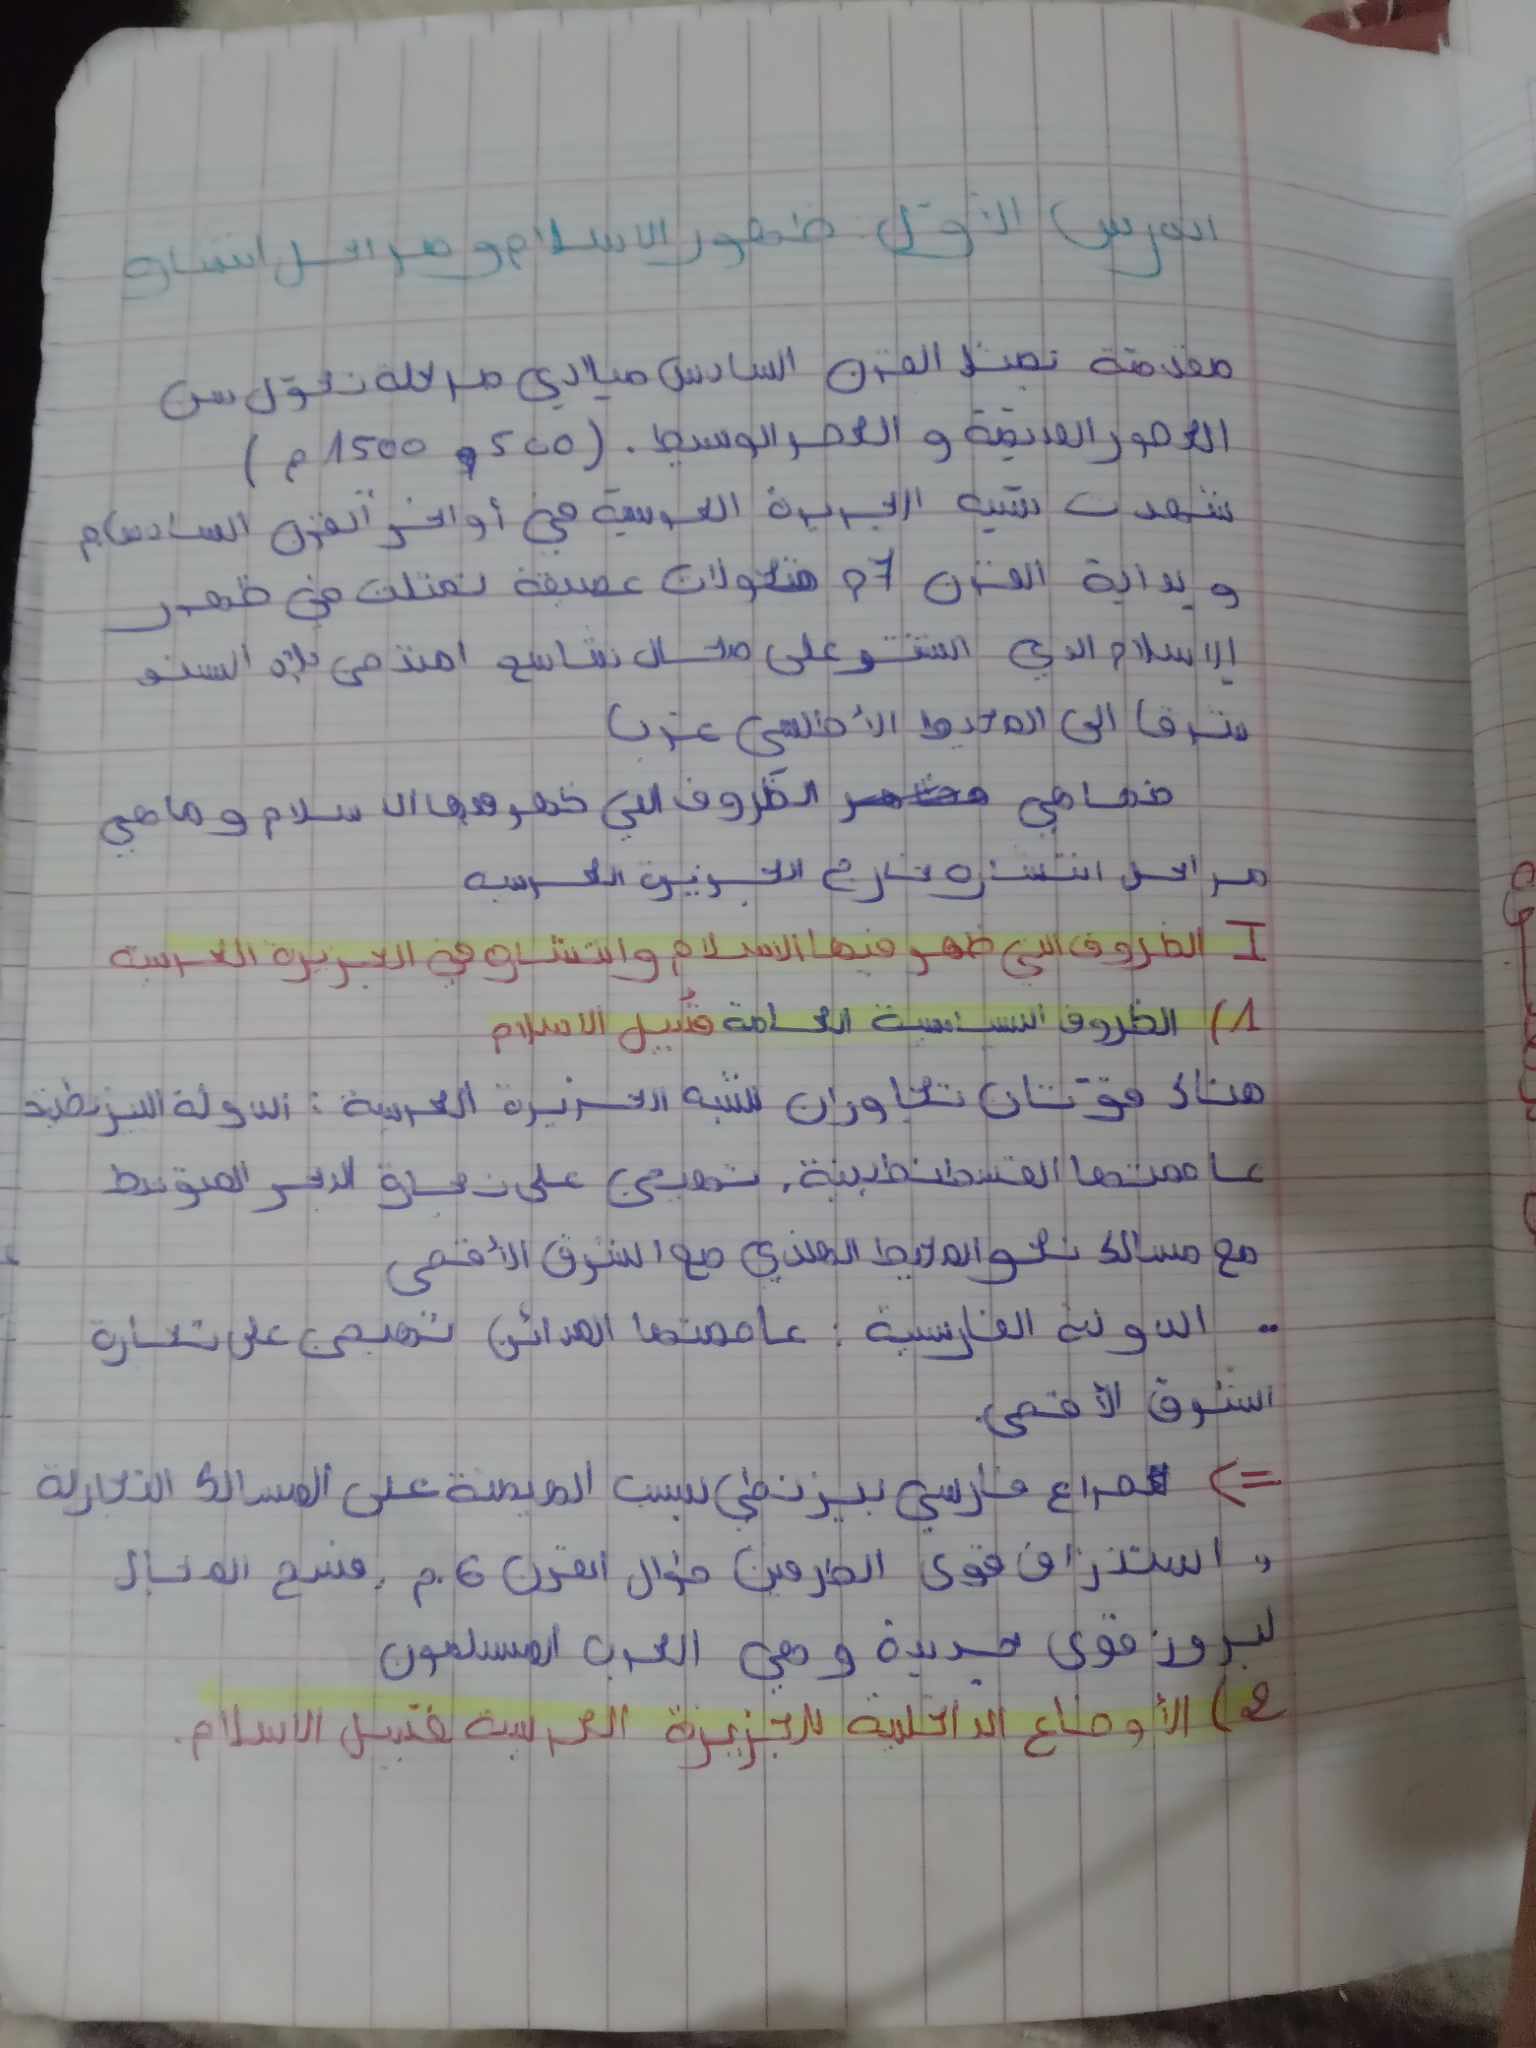 الدرس الأول: ظهور الاسلام و مراحل انتشاره
مقدمة تمثل القرن السادس ميلادي مرحلة تحول بين
العصور القديمة و العصر الوسيط. (500 و 1500 م)
شهدت شبه الجزيرة العربية في أواخر القرن السادس م
و بداية القرن 7م تحولات عميقة تمثلت في ظهور
الاسلام الذي انتشر على مجال شاسع امتد من بلاد السند
شرقا الى المحيط الأطلسي غربا
فماهي الظروف التي ظهر فيها الاسلام و ماهي
مراحل انتشاره خارج الجزيرة العربية
I الظروف التي ظهر فيها الاسلام وانتشاره في الجزيرة العربية
1) الظروف السياسية العامة قُبيل الاسلام
هناك قوّتان تجاوران شبه الجزيرة العربية: الدولة البيزنطية
عاصمتها القسطنطينية, تهيمن على تجارة البحر المتوسط
مع مسالك نحو المحيط الهندي مع الشرق الأقصى
.. الدولة الفارسية: عاصمتها المدائن تهيمن على تجارة
الشرق الأقصى.
=> صراع فارسي بيزنطي بسبب الهيمنة على المسالك التجارية
, استنزاف قوى الطرفين طوال القرن 6.م, فسح المجال
لبروز قوى جديدة وهي العرب المسلمون
2) الأوضاع الداخلية للجزيرة العربية قبيل الاسلام.